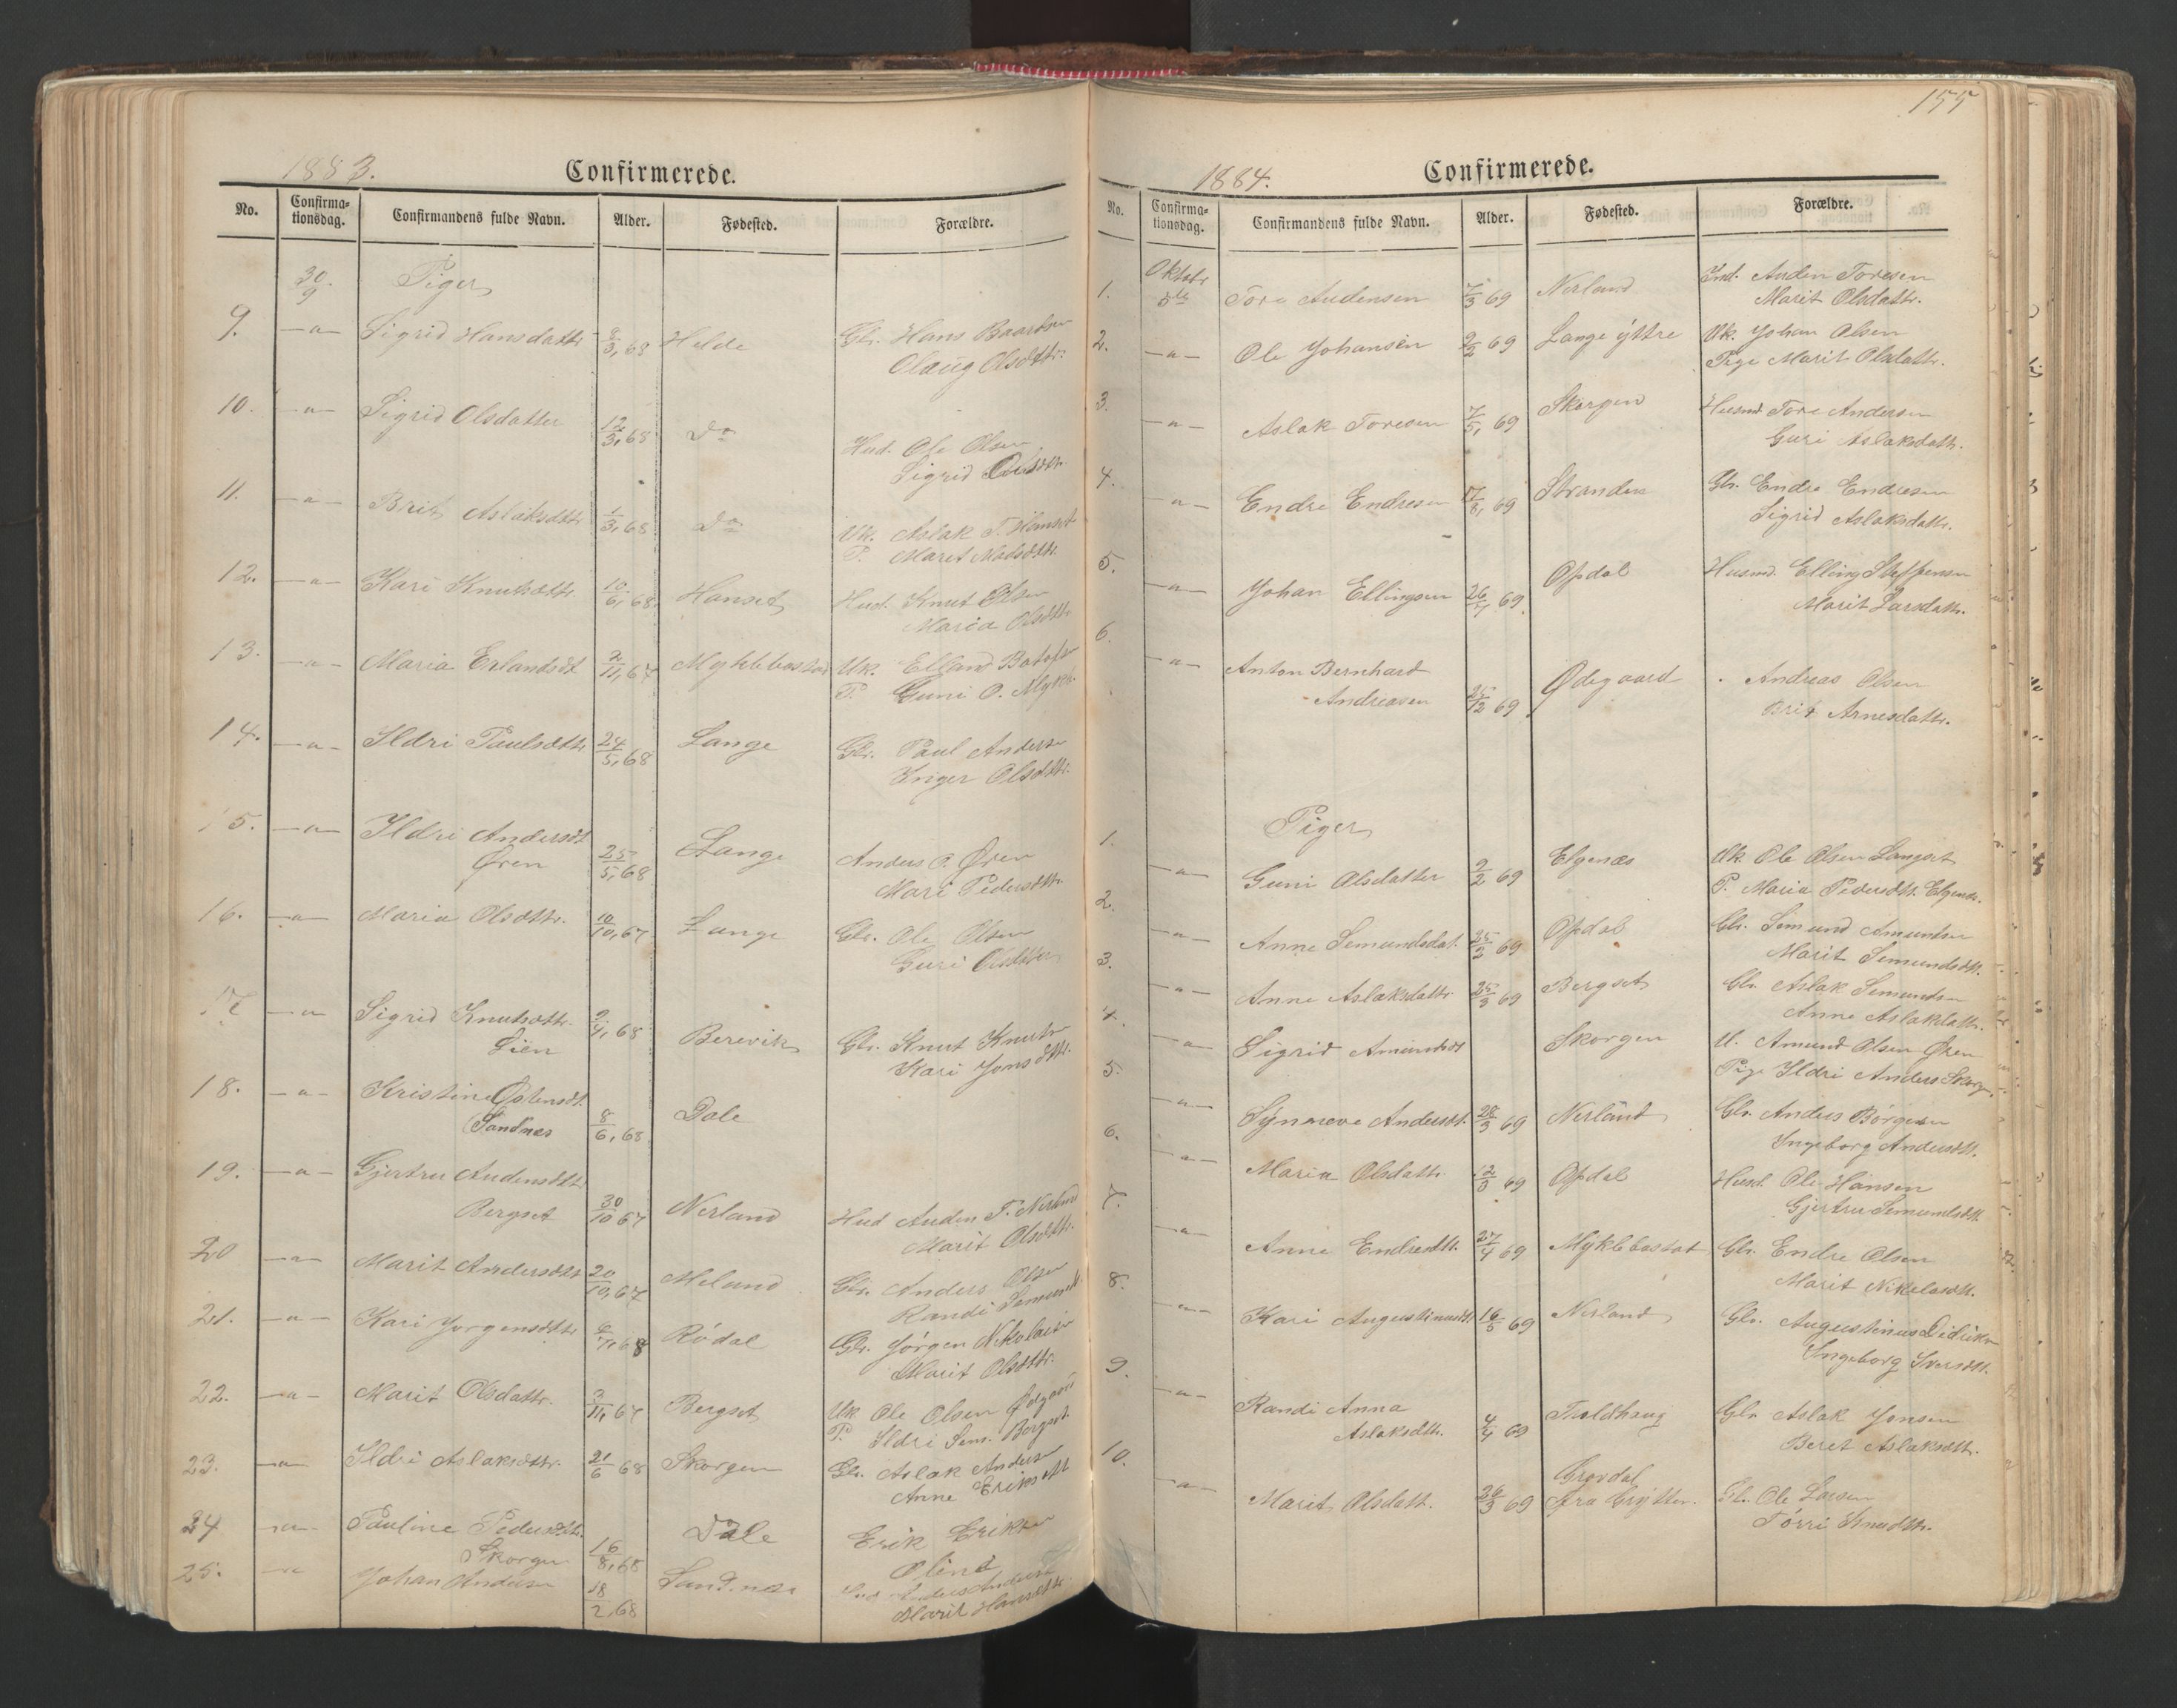 1883.
Confirmerede.
No. Confirma-tionsdag. Confirmandens fulde Navn. Alder. Fødested. Forældre.
30/9 Piger
9. -"- Sigrid Hansdattr 8/3,68 Helde Gbr. Hans Baardsen
Olaug Olsdttr.
10. -"- Sigrid Olsdatter 12/3,68 Do
Hud. Ole Olsen
Sigrid Olsdttr.
11. -"- Brit Aslaksdttr 1/3,68 Do
Uk. Aslak T.
P. Maret Madsdttr.
12. -"- Kari Knutsdttr. 10/6,68. Hanset Hud. Knut Olsen
Maria Olsdttr.
13. -"- Maria Erlandsdt 2/11,67 Myklebostad Uk. Erland
P. Guni O. Mykl.
14. -"- Ildri Paulsdttr 24/5,68 Lange Gbr. Paul Andersen
Inger Olsdttr.
15. -"- Ildri Andersdt
Øren 25/5,68 Lange Anders O. Øren
Mari Pedersdttr.
16. -"- Maria Olsdttr. 10/10,67 Lange Gbr. Ole Olsen
Guri Olsdatter
17 -"- Sigrid Knutsdttr.
Lien 2/4,68 Berevik Gbr. Knut Knutsen
Kari Jonsdttr.
18. -"- Kristine Østensdt.
Sandnes 8/6,68 Dale
19. -"- Gjertru Audensdttr
Bergset 30/10 67 Nerland Hud Auden T. Nerland
Marit Olsdttr.
20 -"- Marit Andersdttr 20/10,67 Meland Gbr. Anders Olsen
Randi
21. -"- Kari Jørgensdttr 6/7,68 Rødal Gbr. Jørgen Nikolaisen
Marit Olsdttr.
22. -"- Marit Olsdattr. 3/11,67 Bergset Uk Ole Olsen Ødegaard
P. Ildri Sem. Bergset
23. -"- Ildri Aslaksdttr. 21/6 68 Skorgen Gbr. Aslak Andersen
Anne Eriksdtt
24 -"- Pauline Pedersdttr.
Skorgen 16/8,68 Dale Erik Eriksen
Oline
25. -"- Johan Andersen 18/2,68 Sandnes Hud Anders Andersen
Marit Hansdttr.
155
1884.
Confirmerede.
No. Confirma-tionsdag. Confirmandens fulde Navn. Alder. Fødested. Forældre.
1. Oktobr
5te Tore Audensen 7/3 69 Nerland Ind. Auden Toresen
Marit Olsdattr.
2. -"- Ole Johansen 9/2 69 Lange yttre Uk. Johan Olsen
Pige Marit Olsdattr.
3. -"- Aslak Toresen 7/5, 69 Skorgen Husmd. Tore Andersen
Guri Aslaksdattr.
4. -"- Endre Endresen 17/8, 69 Stranden Gbr. Endre Endresen
Sigrid Aslaksdattr.
5. -"- Johan Ellingsen 26/4 69. Opdal Husmd. Elling Steffensen
Marit Larsdattr.
6. -"- Anton Bernhard
Andreasen 25/12 69 Ødegaard Andreas Olsen
Brit Arnesdattr.
Piger
1. -"- Guni Olsdatter 9/2 69 Elgenæs Uk Ole Olsen Langset
P. Maria Pedersdtt. Elgenæs.
2. -"- Anne Semundsdat. 25/2 69 Opdal Gbr. Semund Amundsen
Marit Semundsdtt.
3. -"- Anne Aslaksdattr. 25/3 69 Bergset Gbr. Aslak Semundsen
Anne Aslakdattr.
4. -"- Sigrid Amundsdt Skorgen U. Amund Olsen Øren
Pige Ildri Anders Skorgen.
5. -"- Synneve Andersdt. 28/3 69 Nerland Gbr. Anders Børgesen
Ingeborg Andersdtt.
6. -"- Maria Olsdattr. 12/3 69 Opdal Husd. Ole Hansen
Gjertru Semundsdtt.
7. -"- Anne Endresdtt. 27/4 69 Myklebostad Gbr. Endre Olsen
Marit Nikelasdtt.
8. -"- Kari Augustinusdt 16/5 69 Nerland Gbr. Augustinus Didriksen
Ingeborg Iversdtt.
9. -"- Randi Anna
Aslaksdtt. 4/4 69 Troldhaug Gbr Aslak Jonsen
Beret Aslaksdtt.
10. -"- Marit Olsdatt. 26/3 69 Grovdal
fra Grytten. Gbr. Ole Larsen
Tørri Knudttr.